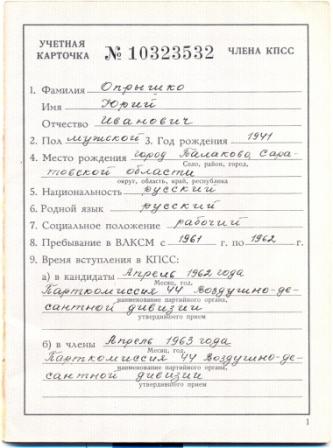 УЧЕТНАЯ КАРТОЧКА № 10323532 ЧЛЕНА КПСС
1. Фамилия Опрышко
Имя Юрий
Отчество Иванович
2. Пол мужской 3. Год рождения 1941
4. Место рождения город Балаково Сара-
Село, район, город,
товской области
округ, область, край, республика
5. Национальность русский
6. Родной язык русский
7. Социальное положение рабочий
8. Пребывание в ВЛКСМ с 1961 г. по 1962 г.
9. Время вступления в КПСС:
а) в кандидаты Апрель 1962 года
Месяц, год,
Парткомиссия 44 Воздушно-де-
наименование партийного органа,
сантной дивизии
утвердившего прием
б) в члены Апрель 1963 года
Месяц, год,
Парткомиссия 44 Воздушно-де-
наименование партийного органа,
сантной дивизии
утвердившего прием
1